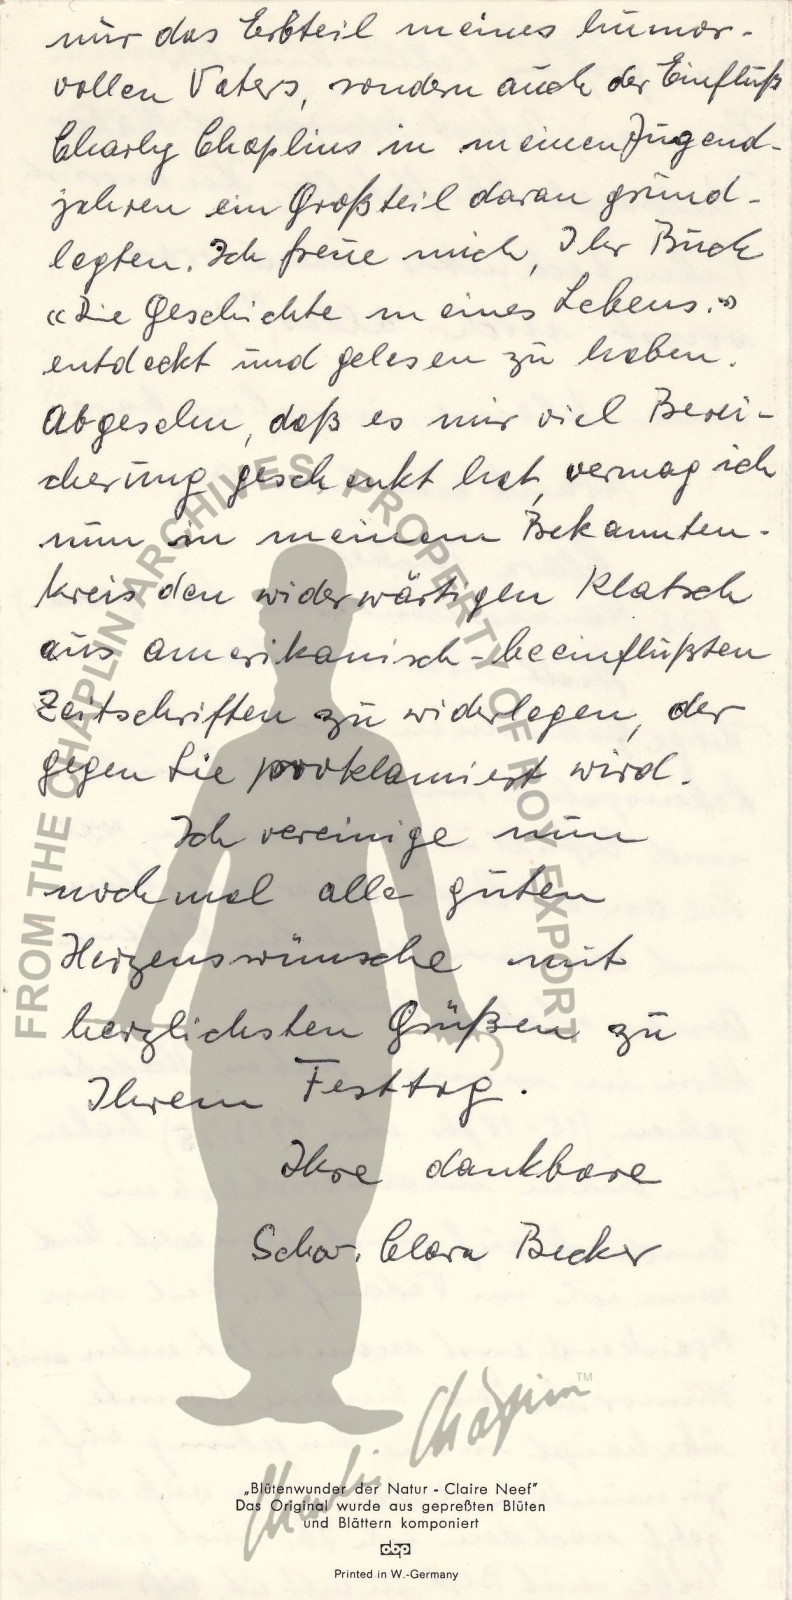 nur das Erbteil meines humor-
vollen Vaters, sondern auch der Einfluß
Charly Chaplins in meinen Jugend-
jahren ein Großteil daran grund-
legten. Ich freue mich, Ihr Buch
«Die Geschichte meines Lebens.»
entdeckt und gelesen zu haben.
Abgesehn, daß es mir viel Berei-
cherung geschenkt hat, vermag ich
nun in meinem Bekannten-
kreis den widerwärtigen Klatsch
aus amerikanisch-beeinflußten
Zeitschriften zu widerlegen, der
gegen Sie proklamiert wird.
Ich vereinige nun
nochmal alle guten
Herzenswünsche mit
herzlichsten Grüßen zu
Ihrem Festtag.
Ihre dankbare
Schw. Clara Becker
FROM THE CHAPLIN ARCHIVES, PROPERTY OF ROY EXPORT
Charlie Chaplin™
„Blütenwunder der Natur - Claire Neef"
Das Original wurde aus gepreßten Blüten
und Blättern komponiert
dbp
Printed in W.-Germany